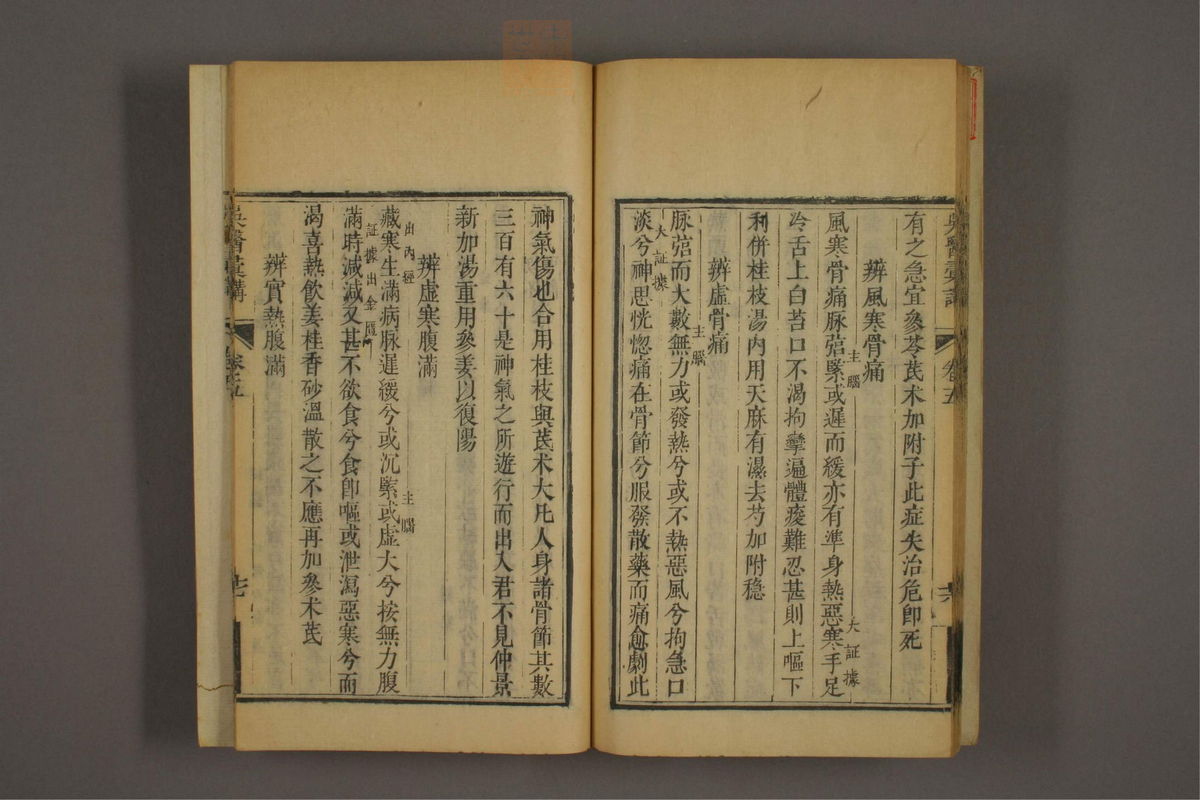 吳醫彙講
卷五
有之急宜參苓芪术加附子此症失治危卽死
辨風寒骨痛
風寒骨痛脉弦緊或遲而緩亦有準身熱惡寒手足
主腦
大証據
冷舌上白苔口不渴拘攣遍體痠難忍甚則上嘔下
利併桂枝湯內用天麻有濕去芍加附穩
辨虛骨痛
脉弦而大數無力或發熱兮或不熱惡風兮拘急口
主腦
淡兮神思恍惚痛在骨節兮服發散藥而痛愈劇此
大証據
神氣傷也合用桂枝與芪术大凡人身諸骨節其數
三百有六十是神氣之所遊行而出入君不見仲景
新加湯重用參姜以復陽
辨虛寒腹滿
藏寒生滿病脉遲緩兮或沉緊或虛大兮按無力腹
出內經
主腦
滿時減減又甚不欲食兮食卽嘔或泄瀉惡寒兮而
証據出金匱
渴喜熱飲姜桂香砂溫散之不應再加參术芪
辨實熱腹滿
吳醫彙講
卷五